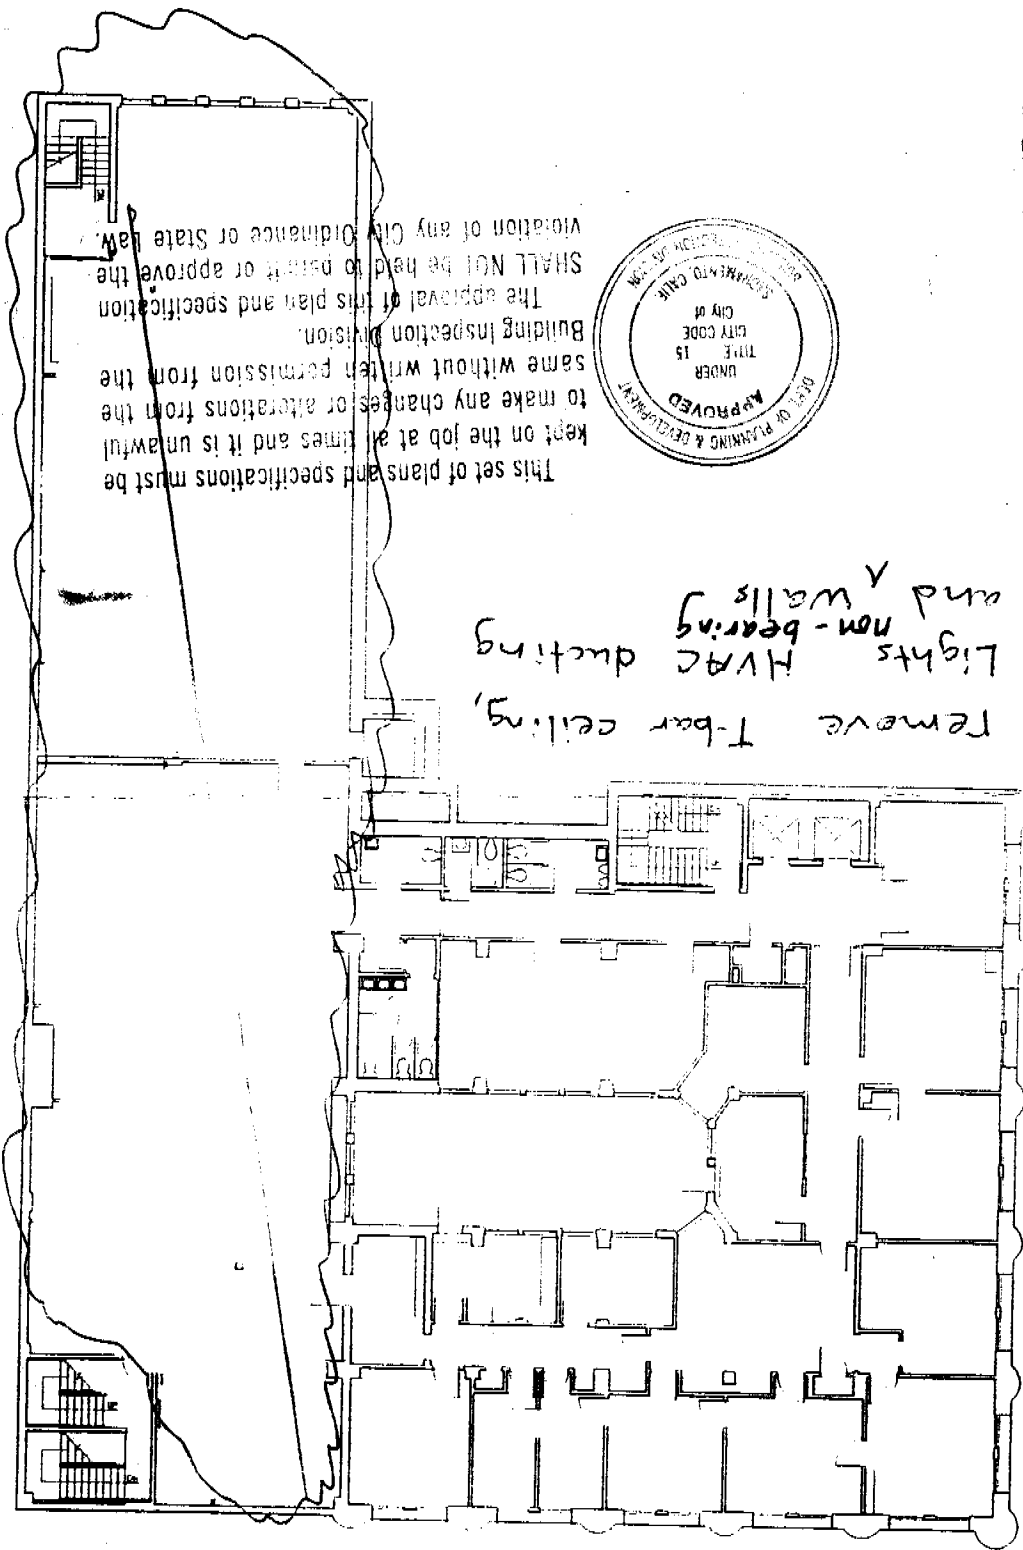 remove T-bar ceiling,
Lights HVAC ducting
non-bearing
and ^ walls
DEPT. OF PLANNING & DEVELOPMENT
APPROVED
UNDER
TITLE 15
CITY CODE
City of
SACRAMENTO, CALIF.
This set of plans and specifications must be
kept on the job at all times and it is unlawful
to make any changes or alterations from the
same without written permission from the
Building Inspection Division.
The approval of this plan and specification
SHALL NOT be held to permit or approve the
violation of any City Ordinance or State Law.